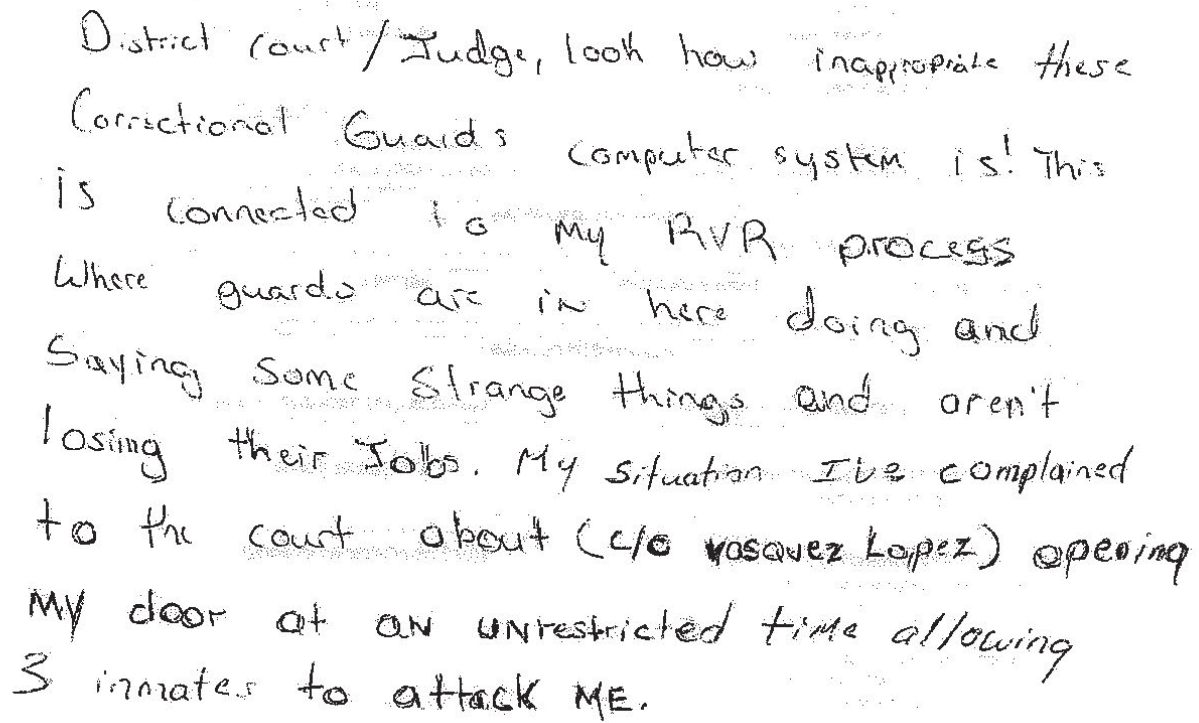 District Court/Judge, look how inappropriate these
Correctional Guards computer system is! This
is connected to My RVR process
Where guards are in here doing and
Saying Some Strange things and aren't
losing their Jobs. My situation I've complained
to the court about (c/o vasquez Lopez) opening
MY door at AN UNrestricted time allowing
3 inmates to attack ME.